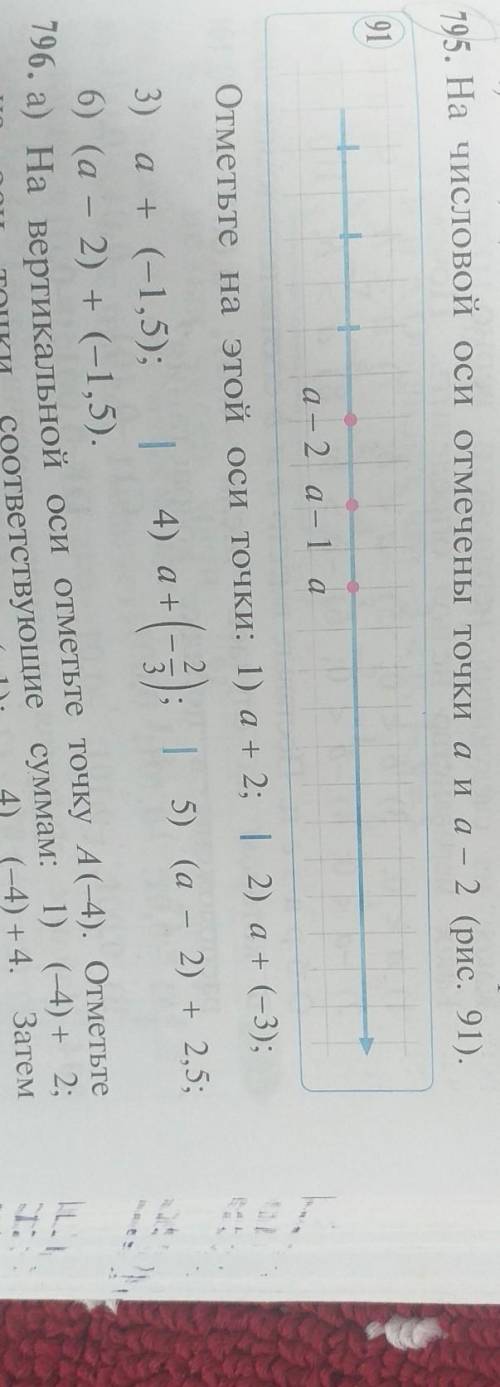 795. На числовой оси отмечены точки a и a − 2 (рис. 91).
91
a − 2 a − 1 a
Отметьте на этой оси точки: 1) a + 2; | 2) a + (−3);
3) a + (−1,5); | 4) a + (−2/3); | 5) (a − 2) + 2,5;
6) (a − 2) + (−1,5).
796. а) На вертикальной оси отметьте точку A(−4). Отметьте
точки соответствующие суммам: 1) (−4) + 2;
4) (−4) + 4. Затем